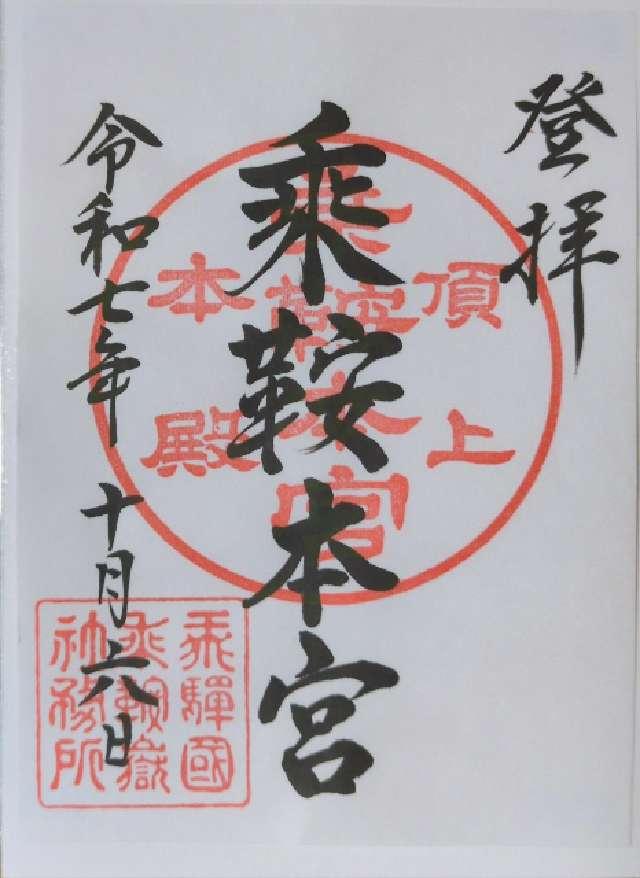 登拝
頂上
乗鞍本宮
本殿
乗鞍本宮
令和七年 十月六日
驒國
乗鞍嶽
社務所